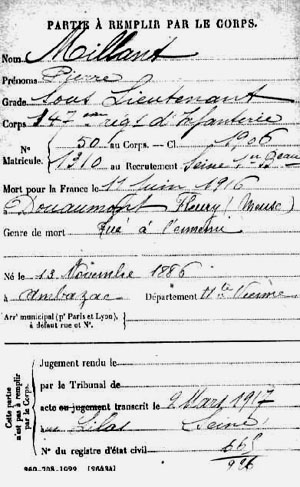 PARTIE À REMPLIR PAR LE CORPS.
Nom Millant
Prénoms Pierre
Grade Sous Lieutenant
Corps 147ème Régt d'Infanterie
N° 50 au Corps. — Cl 1906
Matricule. 1310 au Recrutement Seine 1er Beau
Mort pour la France le 11 juin 1916
à Douaumont Fleury (Meuse)
Genre de mort Tué à l'ennemi
Né le 13 Novembre 1886
à Ambazac Département Hte Vienne
Arrt municipal (pr Paris et Lyon), à défaut rue et N°.
Cette partie n'est pas à remplir par le Corps.
Jugement rendu le
par le Tribunal de
acte ou jugement transcrit le 9 Mars 1917
aux Lilas Seine
N° du registre d'état civil